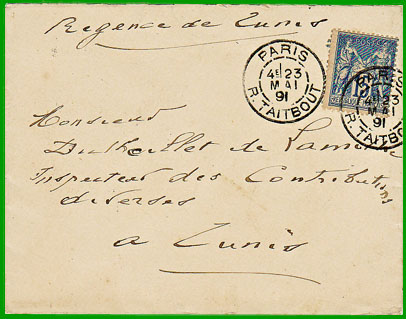 Regence de Tunis
PARIS
4E 23
MAI
91
R. TAITBOUT
PARIS
4E 23
MAI
91
R. TAITBOUT
15
Monsieur
Dutheillet de Lamothe
Inspecteur des Contributions
diverses
a Tunis